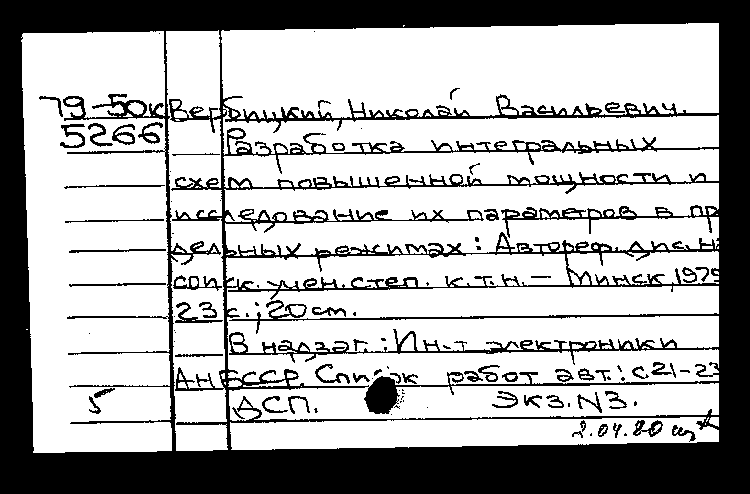 79-50к Вербицкий, Николай Васильевич.
5266 Разработка интегральных
схем повышенной мощности и
исследование их параметров в пр
дельных режимах: Автореф. дис. на
соиск. учен. степ. к.т.н. – Минск, 1979
23 с.; 20 см.
В надзаг.: Ин-т электроники
АН БССР. Список работ авт.: с. 21-23
5 ДСП. Экз. N3.
2.04.80